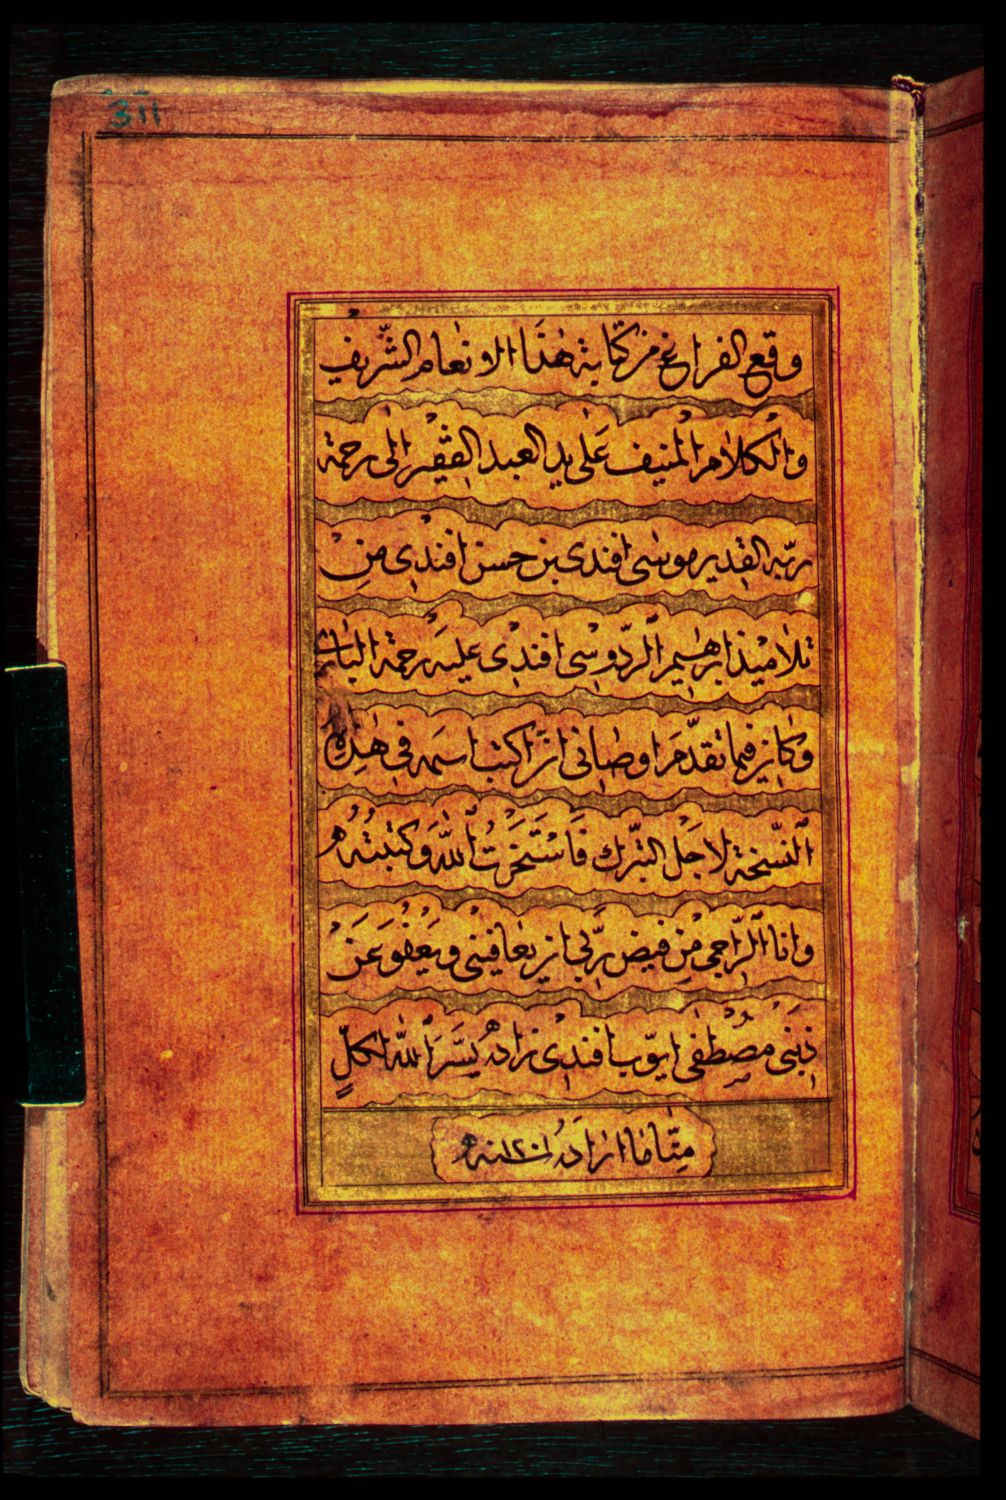 311
وقع الفراغ من كتابة هٰذا الانعام الشّريف
والكلام المنيف على يد العبد الفقير الى رحمة
ربّه القدير موسى افندى بن حسن افندى من
تلاميذ ابرهٰيم الردّوسى افندى عليه رحمة البارى
وكان فيما تقدّم اوصانى ان اكتب اسمه فى هٰذه
النّسخة لاجل التبرّك فاستخرت الله وكتبته
وانا الرّاجى من فيض ربّى ان يعافينى ويعفو عن
ذنبى مصطفى ايّوب افندى زاده يسّر الله لكلّ
منّا ما اراده سنه ١٢٠١